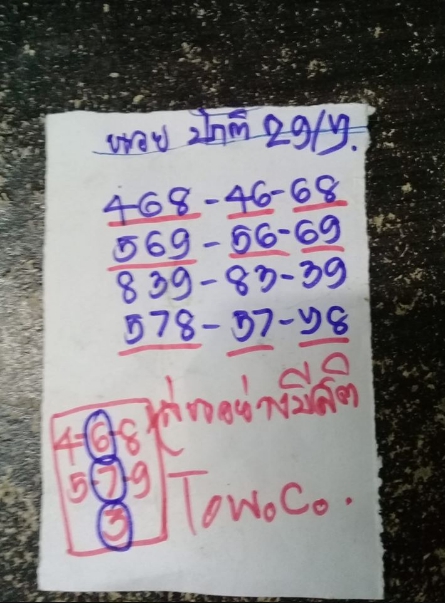 หวย ปกติ 29/7.
468-46-68
569-56-69
839-83-39
578-57-78
4-6-8
5-7-9
3
อย่างมีสติ
Tow.Co.